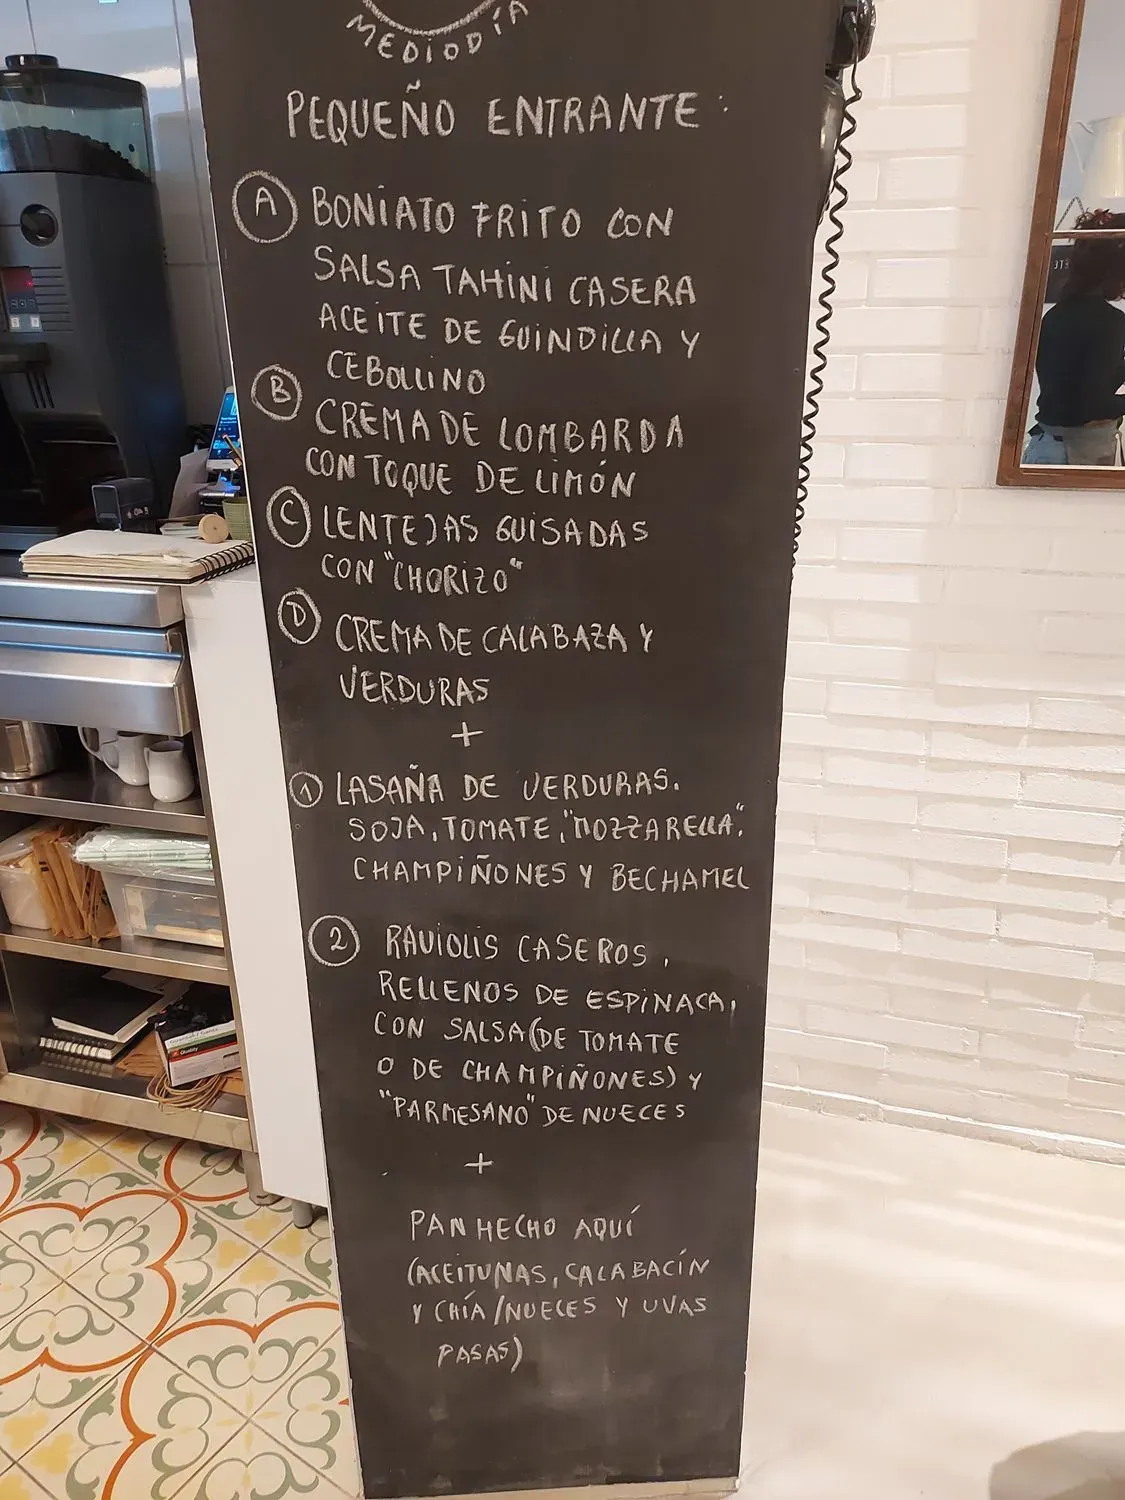 MEDIODÍA
PEQUEÑO ENTRANTE:
A BONIATO FRITO CON
SALSA TAHINI CASERA
ACEITE DE GUINDILLA Y
CEBOLLINO
B CREMA DE LOMBARDA
CON TOQUE DE LIMÓN
C LENTEJAS GUISADAS
CON "CHORIZO"
D CREMA DE CALABAZA Y
VERDURAS
+
1 LASAÑA DE VERDURAS.
SOJA, TOMATE, "MOZZARELLA".
CHAMPIÑONES Y BECHAMEL
2 RAVIOLIS CASEROS,
RELLENOS DE ESPINACA,
CON SALSA (DE TOMATE
O DE CHAMPIÑONES) Y
"PARMESANO" DE NUECES
+
PAN HECHO AQUÍ
(ACEITUNAS, CALABACÍN
Y CHÍA/NUECES Y UVAS
PASAS)